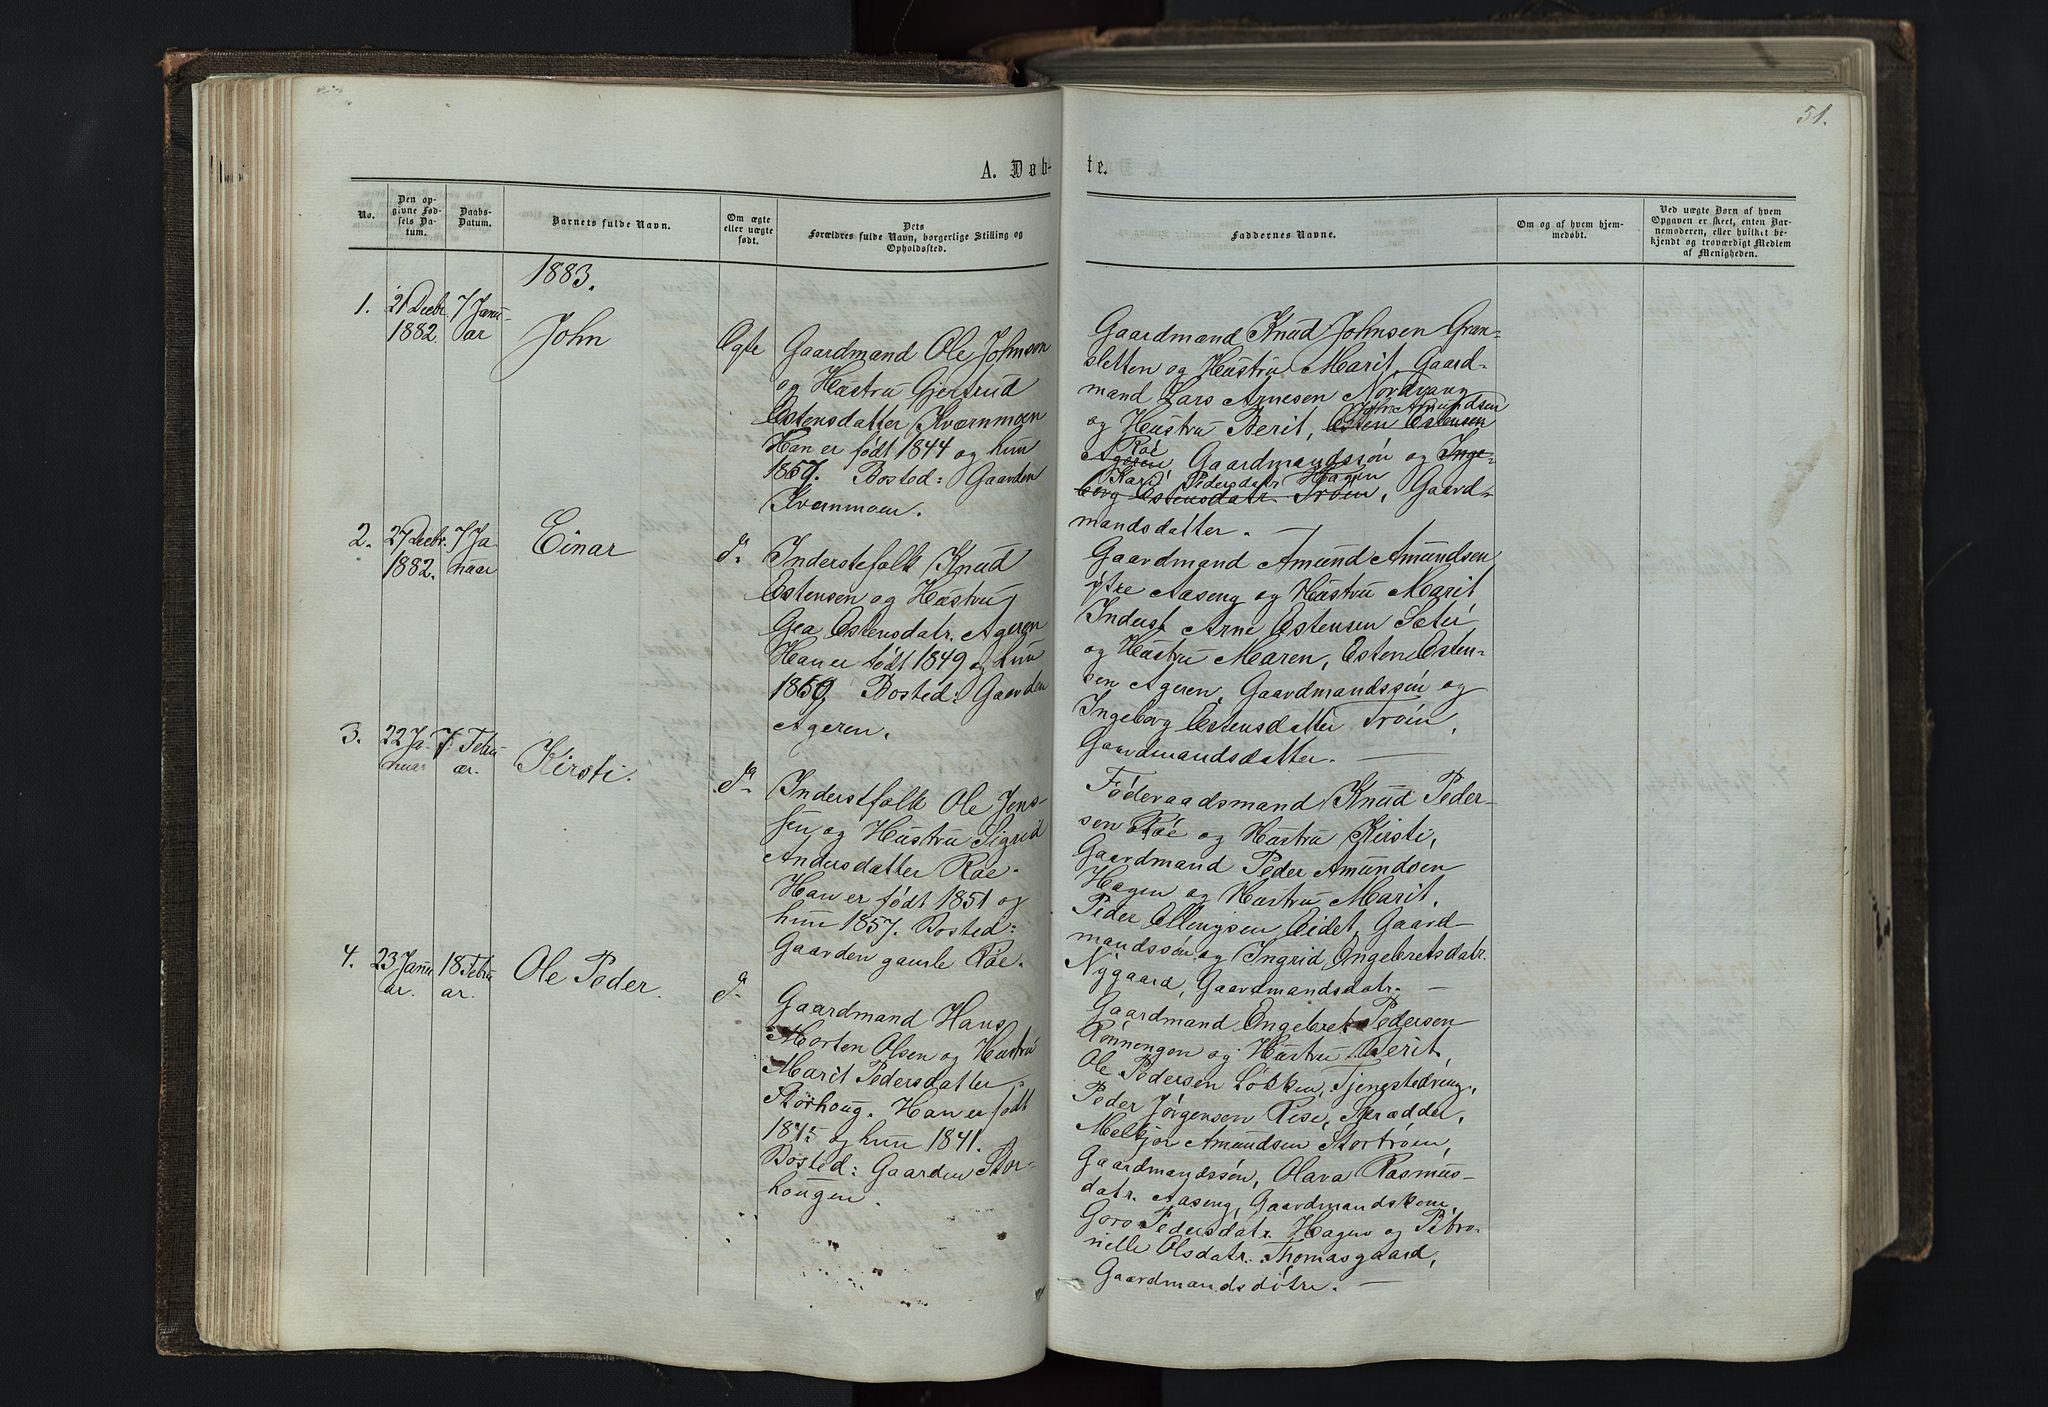 51.
A. Døb-
te.
No.
Den op-
givne Fød-
sels Da-
tum.
Daabs-
Datum.
Barnets fulde Navn.
Om ægte
eller uægte
født.
Dets
Forældres fulde Navn, borgerlige Stilling og
Opholdssted.
Faddernes Navne.
Om og af hvem hjem-
medøbt.
Ved uægte Børn af hvem
Opgaven er skeet, enten Bar-
nemoderen, eller hvilket be-
kjendt og troværdigt Medlem
af Menigheden.
1883.
1.
21 Decbr.
1882.
7 Janu-
ar
John
Ægte
Gaardmand Ole Johnsen
og Hustru Gjertrud
Estensdatter Kværnmoen
Han er født 1844 og hun
1857. Bosted: Gaarden
Kvernmoen.
Gaardmand Knud Johnsen Gran-
sletten og Hustru Marit, Gaard-
mand Lars Arnesen Nordvang
og Hustru Berit, Esten Estensen
John Amundsen
Røe
Ageren, Gaardmandssøn og Inge-
Kari Pedersdatr. Hagen
borg Estensdatr. Trøen, Gaard-
mandsdatter. —
2.
27 Decbr.
1882.
7 Ja
nuar
Einar
do
Inderstefolk Knud
Estensen og Hustru
Gea Estensdatr. Ageren
Han er født 1849 og hun
1859. Bosted: Gaarden
Ageren.
Gaardmand Amund Amundsen
østre Aaseng og Hustru Marit
Inderst Arne Estensen Sæter
og Hustru Maren, Esten Esten-
sen Ageren, Gaardmandssøn og
Ingeborg Estensdatter Trøen,
Gaardmandsdatter. —
3.
22 Ja-
nuar
7 Febru
ar.
Kirsti.
do
Inderstfolk Ole Jens-
sen og Hustru Sigrid
Andersdatter Røe.
Han er født 1851 og
hun 1857. Bosted:
Gaarden gamle Røe.
Føderaadsmand Knud Peder-
sen Røe og Hustru Kirsti,
Gaardmand Peder Amundsen
Hagen og Hustru Marit,
Peder Ellingsen Eidet, Gaard-
mandssøn og Ingrid Engebretsdatr.
Nygaard, Gaardmandsdatr. —
4.
23 Janu
ar.
18 Febru
ar.
Ole Peder.
do
Gaardmand Hans
Morten Olsen og Hustru
Marit Pedersdatter
Storhoug. Han er født
og hun 1841.
Bosted: Gaarden Stor-
hougen.
Gaardmand Engebret Pedersen
Rønningen og Hustru Berit,
Ole Pedersen Løkken, Tjenestedreng,
Peder Jørgensen Rise, Skrædder,
Melkjor Amundsen Stortrøen,
Gaardmandssøn, Olava Rasmus-
datr. Aaseng, Gaardmandskone,
Goro Pedersdatr. Hagen og Petro-
nelle Olsdatr. Thomasgaard,
Gaardmandsdøtre. —